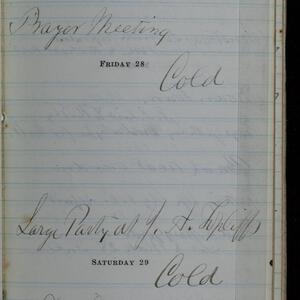 Prayer Meeting
FRIDAY 28
Cold
Large Party at J. A. Topliffs
SATURDAY 29
Cold